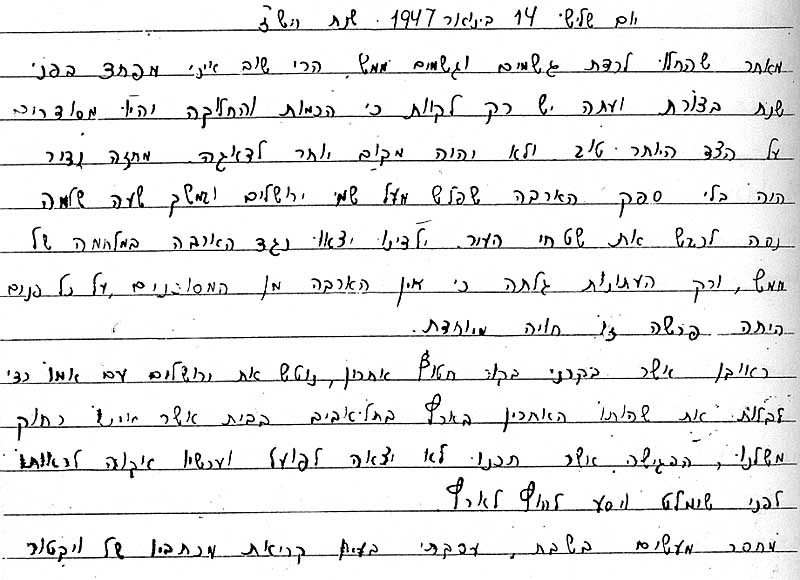 יום שלישי 14 בינואר 1947. שנת היש"ז
מאחר שהחלו לרדת גשמים וגשמים ממש הרי שוב אייני מפחד בפני
שנת בצורת ועתה יש רק לקוות כי הכמות והחלוקה יהיו מסודרים
על הצד היותר טוב ולא יהוה מקום יותר לדאיגה. מחזה נדיר
היה בלי ספק הארבה שפלש מעל שמי ירושלים ובמשך שעה שלמה
נסה לכבש את שטחי העיר. ילדינו יצאו נגד הארבה במלחמה של
ממש, ורק העתונות גלתה כי אין הארבה מן המסוכנים, על כל פנים
היתה פרשה זו חויה מיוחדת.
ראובן אשר בקרני בקור חטוף אחרון, נוטש את ירושלים עם אמו כדי
לבלות את שהותו האחרון בארץ בתל-אביב בבית אשר איינו רחוק
משלנו, הפגישה אשר תכננו לא יצאה לפועל ועכשיו אקוה לראותו
לפני שימלט ויסע לחוץ לארץ
מחסר מעשים בשבת, עכבתי בעיון קריאת מכתביו של ויקטור